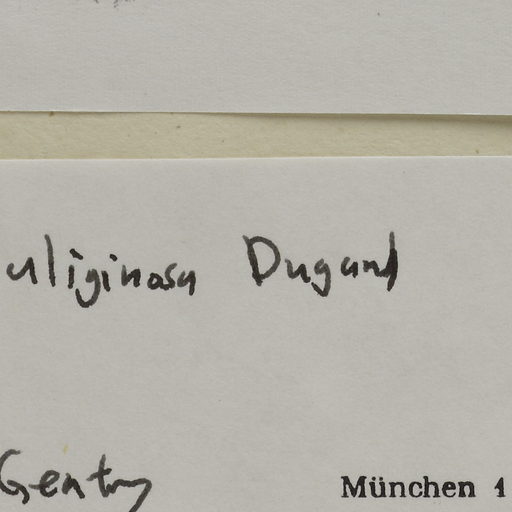 uliginosa Dugand
Gentry München 1